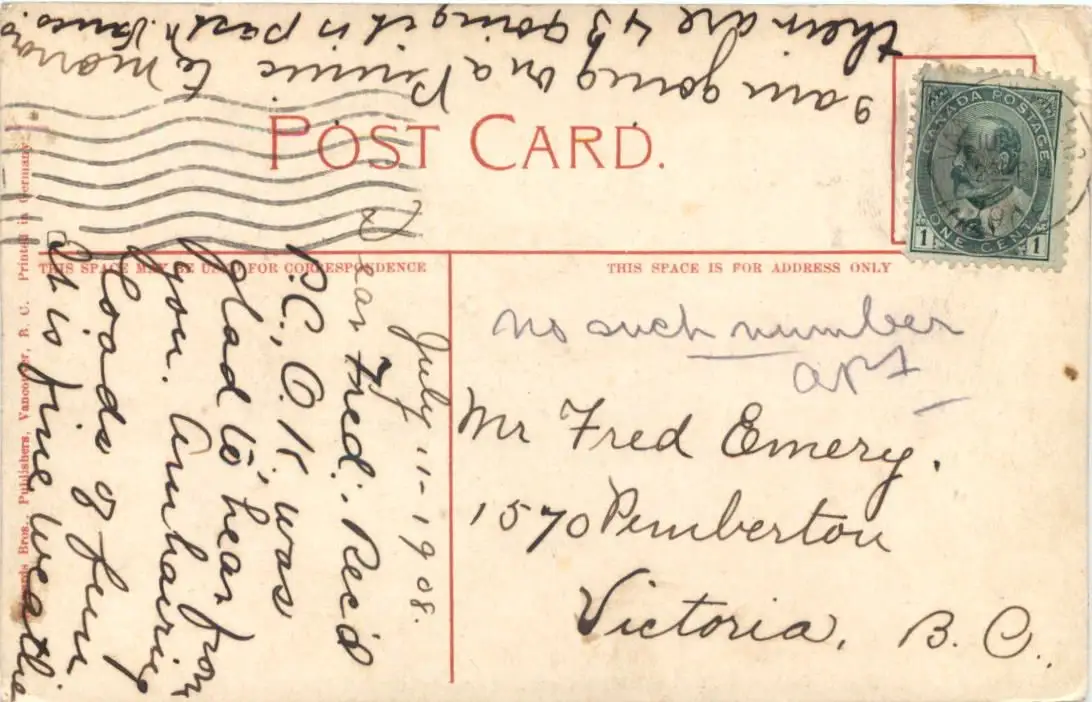 POST CARD.
CANADA POSTAGE
ONE CENT
1 1
THIS SPACE MAY BE USED FOR CORRESPONDENCE
THIS SPACE IS FOR ADDRESS ONLY
Bros., Publishers, Vancouver, B. C. Printed in Germany.
July 11-1908.
Dear Fred. Rec'd
P.C., O.K. was
glad to hear from
you. Am having
Loads of fun
It is fine weather
I am going on a Picnic to morrow
there are 43 going it is past
no such number
apt
Mr Fred Emery.
1570 Pemberton
Victoria, B. C.,